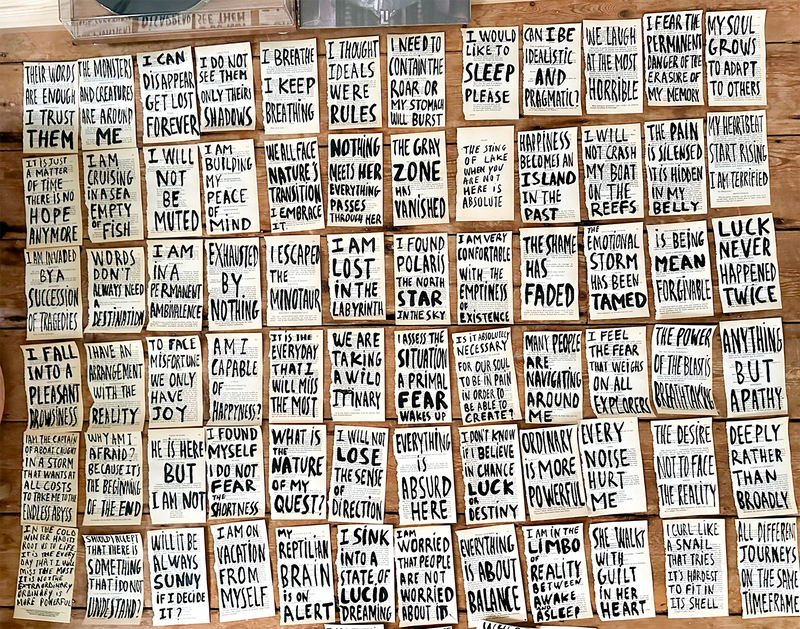 THEIR WORDS
ARE ENOUGH
I TRUST
THEM
THE MONSTERS
AND CREATURES
ARE AROUND
ME
I CAN
DISAPPEAR
GET LOST
FOREVER
I DO NOT
SEE THEM
ONLY THEIRS
SHADOWS
I BREATHE
I KEEP
BREATHING
I THOUGHT
IDEALS
WERE
RULES
I NEED TO
CONTAIN THE
ROAR OR
MY STOMACH
WILL BURST
I WOULD
LIKE TO
SLEEP
PLEASE
CAN I BE
IDEALISTIC
AND
PRAGMATIC?
WE LAUGH
AT THE MOST
HORRIBLE
I FEAR THE
PERMANENT
DANGER OF THE
ERASURE OF
MY MEMORY
MY SOUL
GROWS
TO ADAPT
TO OTHERS
IT IS JUST
A MATTER
OF TIME
THERE IS NO
HOPE
ANYMORE
I AM
CRUISING
IN A SEA
EMPTY
OF FISH
I WILL
NOT
BE
MUTED
I AM
BUILDING
MY
PEACE
OF
MIND
WE ALL FACE
NATURE'S
TRANSITION
I EMBRACE
IT
NOTHING
MEETS HER
EVERYTHING
PASSES
THROUGH HER
THE GRAY
ZONE
HAS
VANISHED
THE STING
OF LAKE
WHEN YOU
ARE NOT
HERE IS
ABSOLUTE
HAPPINESS
BECOMES AN
ISLAND
IN THE
PAST
I WILL
NOT CRASH
MY BOAT
ON THE
REEFS
THE PAIN
IS SILENSED
IT IS HIDDEN
IN MY
BELLY
MY HEARTBEAT
START RISING
I AM TERRIFIED
I AM INVADED
BY A
SUCCESSION
OF TRAGEDIES
WORDS
DON'T
ALWAYS NEED
A
DESTINATION
I AM
IN A
PERMANENT
AMBIVALENCE
EXHAUSTED
BY
NOTHING
I ESCAPED
THE
MINOTAUR
I AM
LOST
IN THE
LABYRINTH
I FOUND
POLARIS
THE NORTH
STAR
IN THE SKY
I AM VERY
CONFORTABLE
WITH THE
EMPTINESS
OF
EXISTENCE
THE SHAME
HAS
FADED
THE
EMOTIONAL
STORM
HAS BEEN
TAMED
IS BEING
MEAN
FORGIVABLE
LUCK
NEVER
HAPPENED
TWICE
I FALL
INTO A
PLEASANT
DROWSINESS
I HAVE AN
ARRANGEMENT
WITH THE
REALITY
TO FACE
MISFORTUNE
WE ONLY
HAVE
JOY
AM I
CAPABLE
OF
HAPPYNESS?
IT IS THE
EVERYDAY
THAT I
WILL MISS
THE MOST
WE ARE
TAKING
A WILD
ITINARY
I ASSESS THE
SITUATION
A PRIMAL
FEAR
WAKES UP
IS IT ABSOLUTELY
NECESSARY
FOR OUR SOUL
TO BE IN PAIN
IN ORDER TO
BE ABLE TO
CREATE?
MANY PEOPLE
ARE
NAVIGATING
AROUND
ME
I FEEL
THE FEAR
THAT WEIGHS
ON ALL
EXPLORERS
THE POWER
OF THE BLAST IS
BREATHTAKING
ANYTHING
BUT
APATHY
I AM THE CAPTAIN
OF A BOAT CAUGHT
IN A STORM
THAT WANTS AT
ALL COSTS
TO TAKE ME TO THE
ENDLESS ABYSS
WHY AM I
AFRAID?
BECAUSE IT'S
THE BEGINNING
OF THE END
HE IS HERE
BUT
I AM NOT
I FOUND
MYSELF
I DO NOT
FEAR
THE
SHORTNESS
WHAT IS
THE
NATURE
OF MY
QUEST?
I WILL NOT
LOSE
THE SENSE
OF
DIRECTION
EVERYTHING
IS
ABSURD
HERE
I DON'T KNOW
IF I BELIEVE
IN CHANCE
LUCK
OR
DESTINY
ORDINARY
IS MORE
POWERFUL
EVERY
NOISE
HURT
ME
THE DESIRE
NOT TO FACE
THE REALITY
DEEPLY
RATHER
THAN
BROADLY
IN THE COLD
WINTER HABITS
ROOT US TO LIFE
IT IS THE EVERY
DAY THAT I WILL
MISS THE MOST
IT IS NOT THE
EXTRAORDINARY
ORDINARY IS
MORE POWERFUL
I SHOULD ACCEPT
THAT THERE IS
SOMETHING
THAT I DO NOT
UNDESTAND?
WILL IT BE
ALWAYS
SUNNY
IF I DECIDE
IT?
I AM ON
VACATION
FROM
MYSELF
MY
REPTILIAN
BRAIN
IS ON
ALERT
I SINK
INTO A
STATE OF
LUCID
DREAMING
I AM
WORRIED
THAT PEOPLE
ARE NOT
WORRIED
ABOUT IT
EVERYTHING
IS ABOUT
BALANCE
I AM IN THE
LIMBO
OF
REALITY
BETWEEN
AWAKE
AND
ASLEEP
SHE WALKT
WITH
GUILT
IN HER
HEART
I CURL LIKE
A SNAIL
THAT TRIES
IT'S HARDEST
TO FIT IN
ITS SHELL
ALL DIFFERENT
JOURNEYS
ON THE SAME
TIMEFRAME